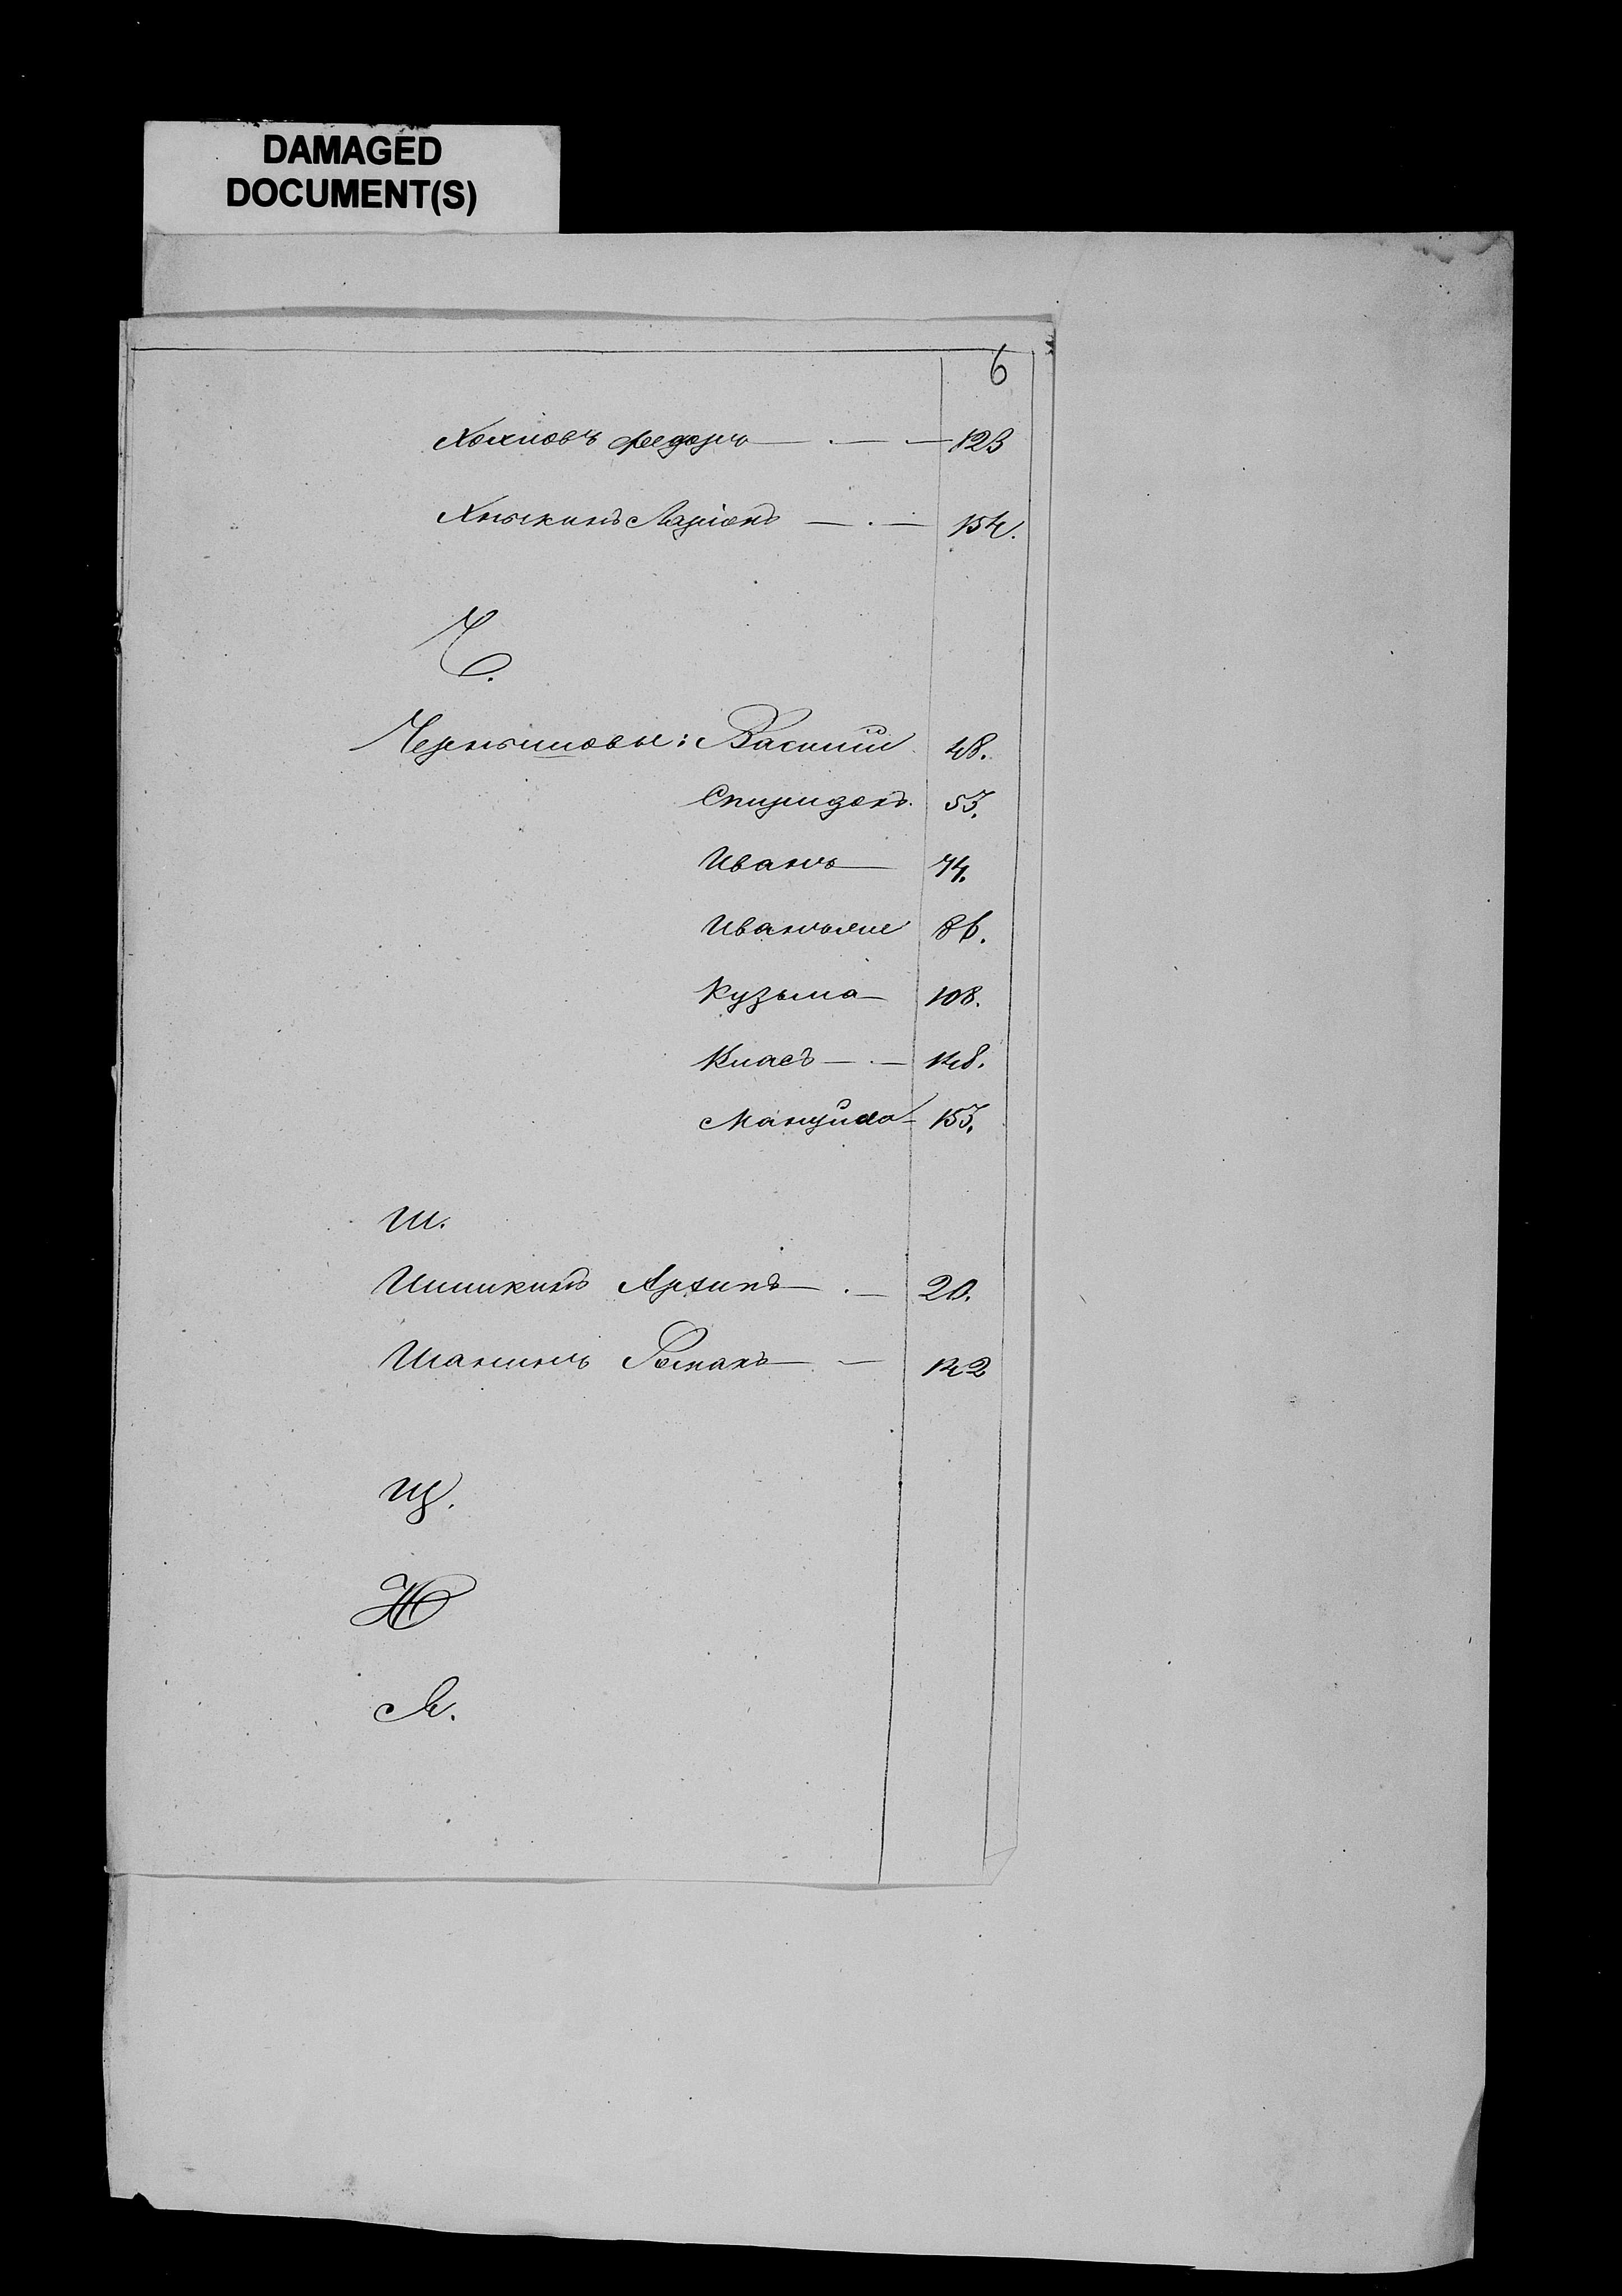 DAMAGED
DOCUMENT(S)
6
Холповъ Федоръ — . — . — 123
Хныкинъ Ларіонъ — . — 154.
Ч.
Чернышовы: Василій 48.
Спиридонъ. 53.
Иванъ — 74.
Иванъ же 86.
Кузьма — 108.
Власъ — . — 148.
Мануйла — 153.
Ш.
Шишкинъ Архипъ — . — 20.
Шанинъ Романъ — — 142
Щ.
Ю
Я.